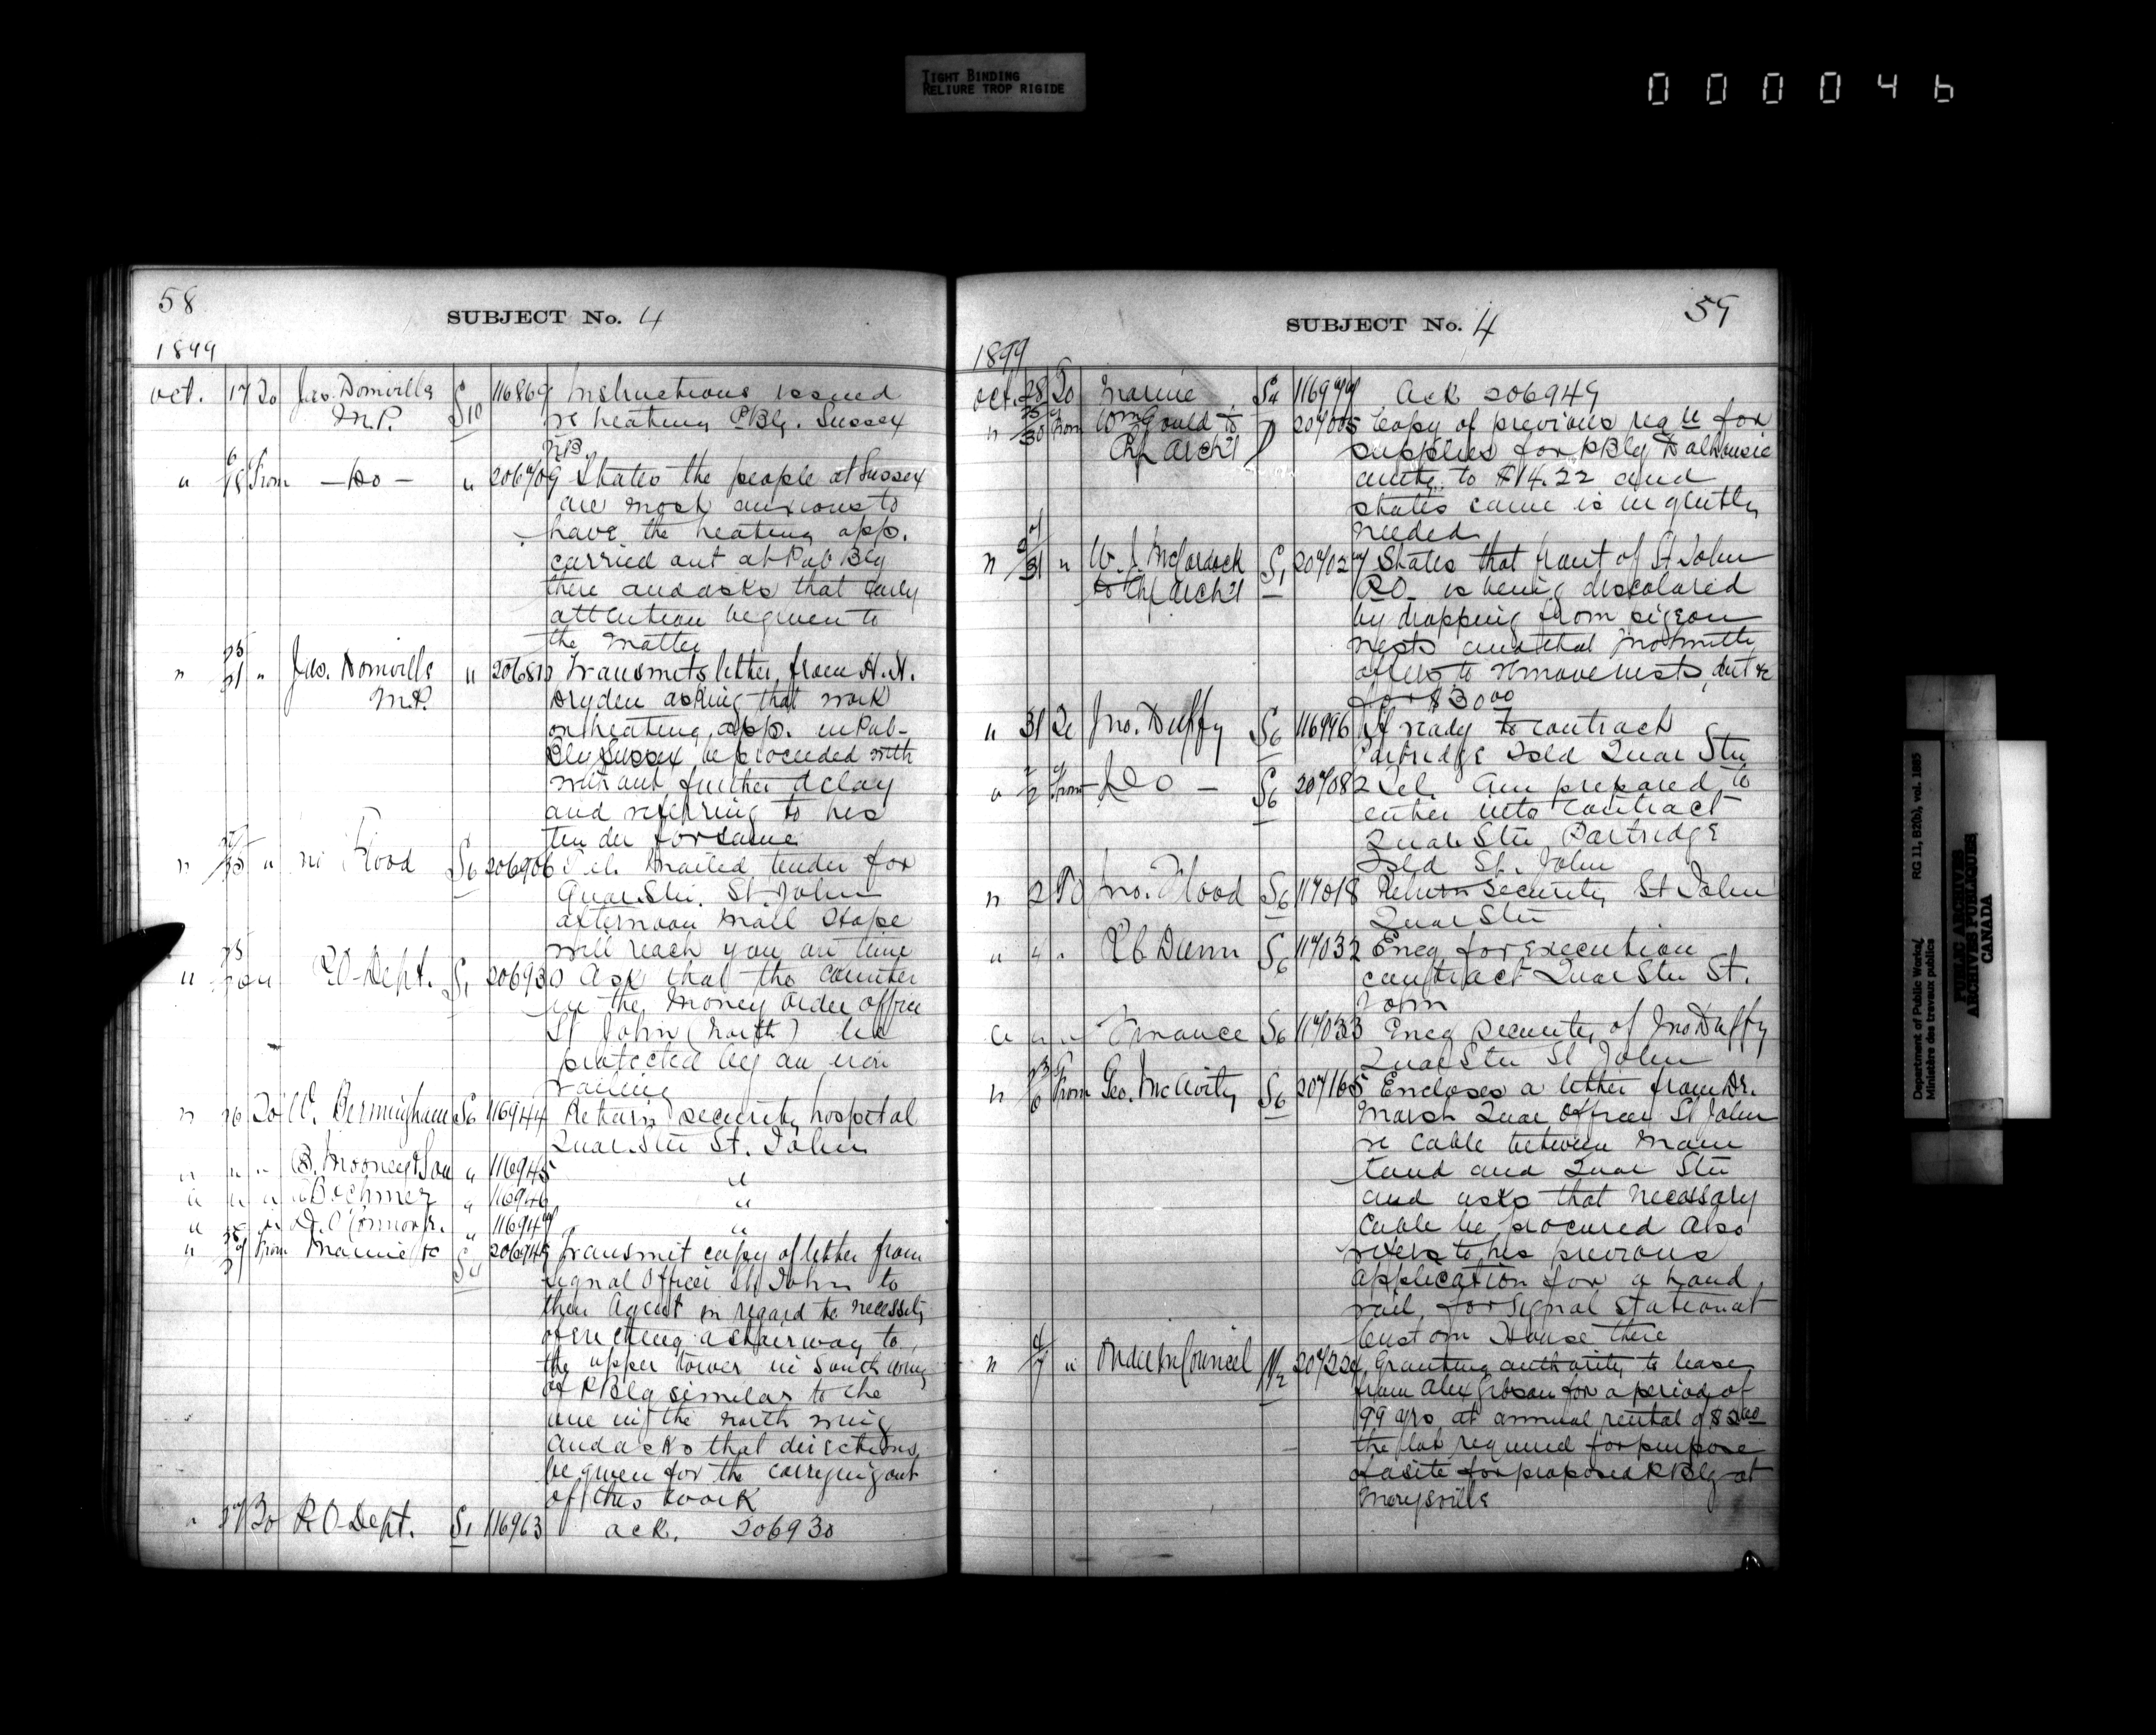 TIGHT BINDING
RELIURE TROP RIGIDE
000046
58
SUBJECT No. 4
1899
Oct. 17 To Jas. Domville S10 116869 Instructions issued
M.P. re heating PBlg. Sussex
NB
" 18 From - Do - " States the people at Sussex
are most anxious to
have the heating app.
carried out at Pub Blg
there and asks that early
attention be given to
the matter
" 21 " Jas. Domville " Transmits letter from H. H.
M.P. Dryden asking that work
on heating app. in Pub-
Blg Sussex be proceeded with
without further delay
and referring to his
tender for same
" " Flood S6 206906 Tel. Mailed tender for
Quar. Stn. St. John
afternoon mail Hope
will reach you in time
" P.O. Dept. S1 206930 Ask that the counter
in the Money Order Office
St John (North) be
protected by an iron
railing
" 26 To W. Bermingham S6 116944 Return security hospital
Quar. Stn St. John
" " " B. Mooney & Son " 116945 "
" " " Boehmer " 116946 "
" " " D. O'Connor Jr. " 116947 "
" From Marine S4 206949 Transmit copy of letter from
Signal Officer St John to
their Agent in regard to necessity
of erecting a stairway to
the upper tower in South wing
of PBlg similar to the
one in the north wing
and asks that directions
be given for the carrying out
of this work
" 27 To P.O. Dept. S1 116963 ack. 206930
59
SUBJECT No. 4
1899
Oct. 28 To Marine S4 Ack 206949
" 30 From Wm Gould to 207005 Copy of previous reqn for
Chf Arch't supplies for PBlg Dalhousie
amtg. to $14.22 and
states same is urgently
needed
" 31 " to Chf Arch't S1 207027 States that front of St John
P.O. is being discolored
by dropping from pigeon
nests and that
offers to remove nests, dirt &c
for $30.00
" 31 To Jno. Duffy S6 116996 If ready to contract
Partridge Isld Quar Stn
" From - Do - S6 207082 Tel. Am prepared to
enter into contract
Quar Stn Partridge
Isld St. John
" 2 To Jno. Flood S6 117018 Return security St John
Quar Stn
" 4 " Dunn S6 117032 Encg for execution
contract Quar Stn St.
John
" " " Finance S6 117033 Encg security of Jno Duffy
Quar Stn St John
" 6 From Geo. McAvity S6 207165 Encloses a letter from Dr.
March Quar Officer St John
re cable between main
land and Quar Stn
and asks that necessary
cable be procured also
refers to his previous
application for a hand
rail for signal station at
Custom House there
" 7 " Order In Council Granting authority to lease
from Alex Gibson for a period of
99 yrs at annual rental of
the lot required for purpose
of a site for proposed PBlg at
Marysville
Department of Public Works/
Ministère des travaux publics
RG 11, B2(b), vol. 1885
PUBLIC ARCHIVES
ARCHIVES PUBLIQUES
CANADA